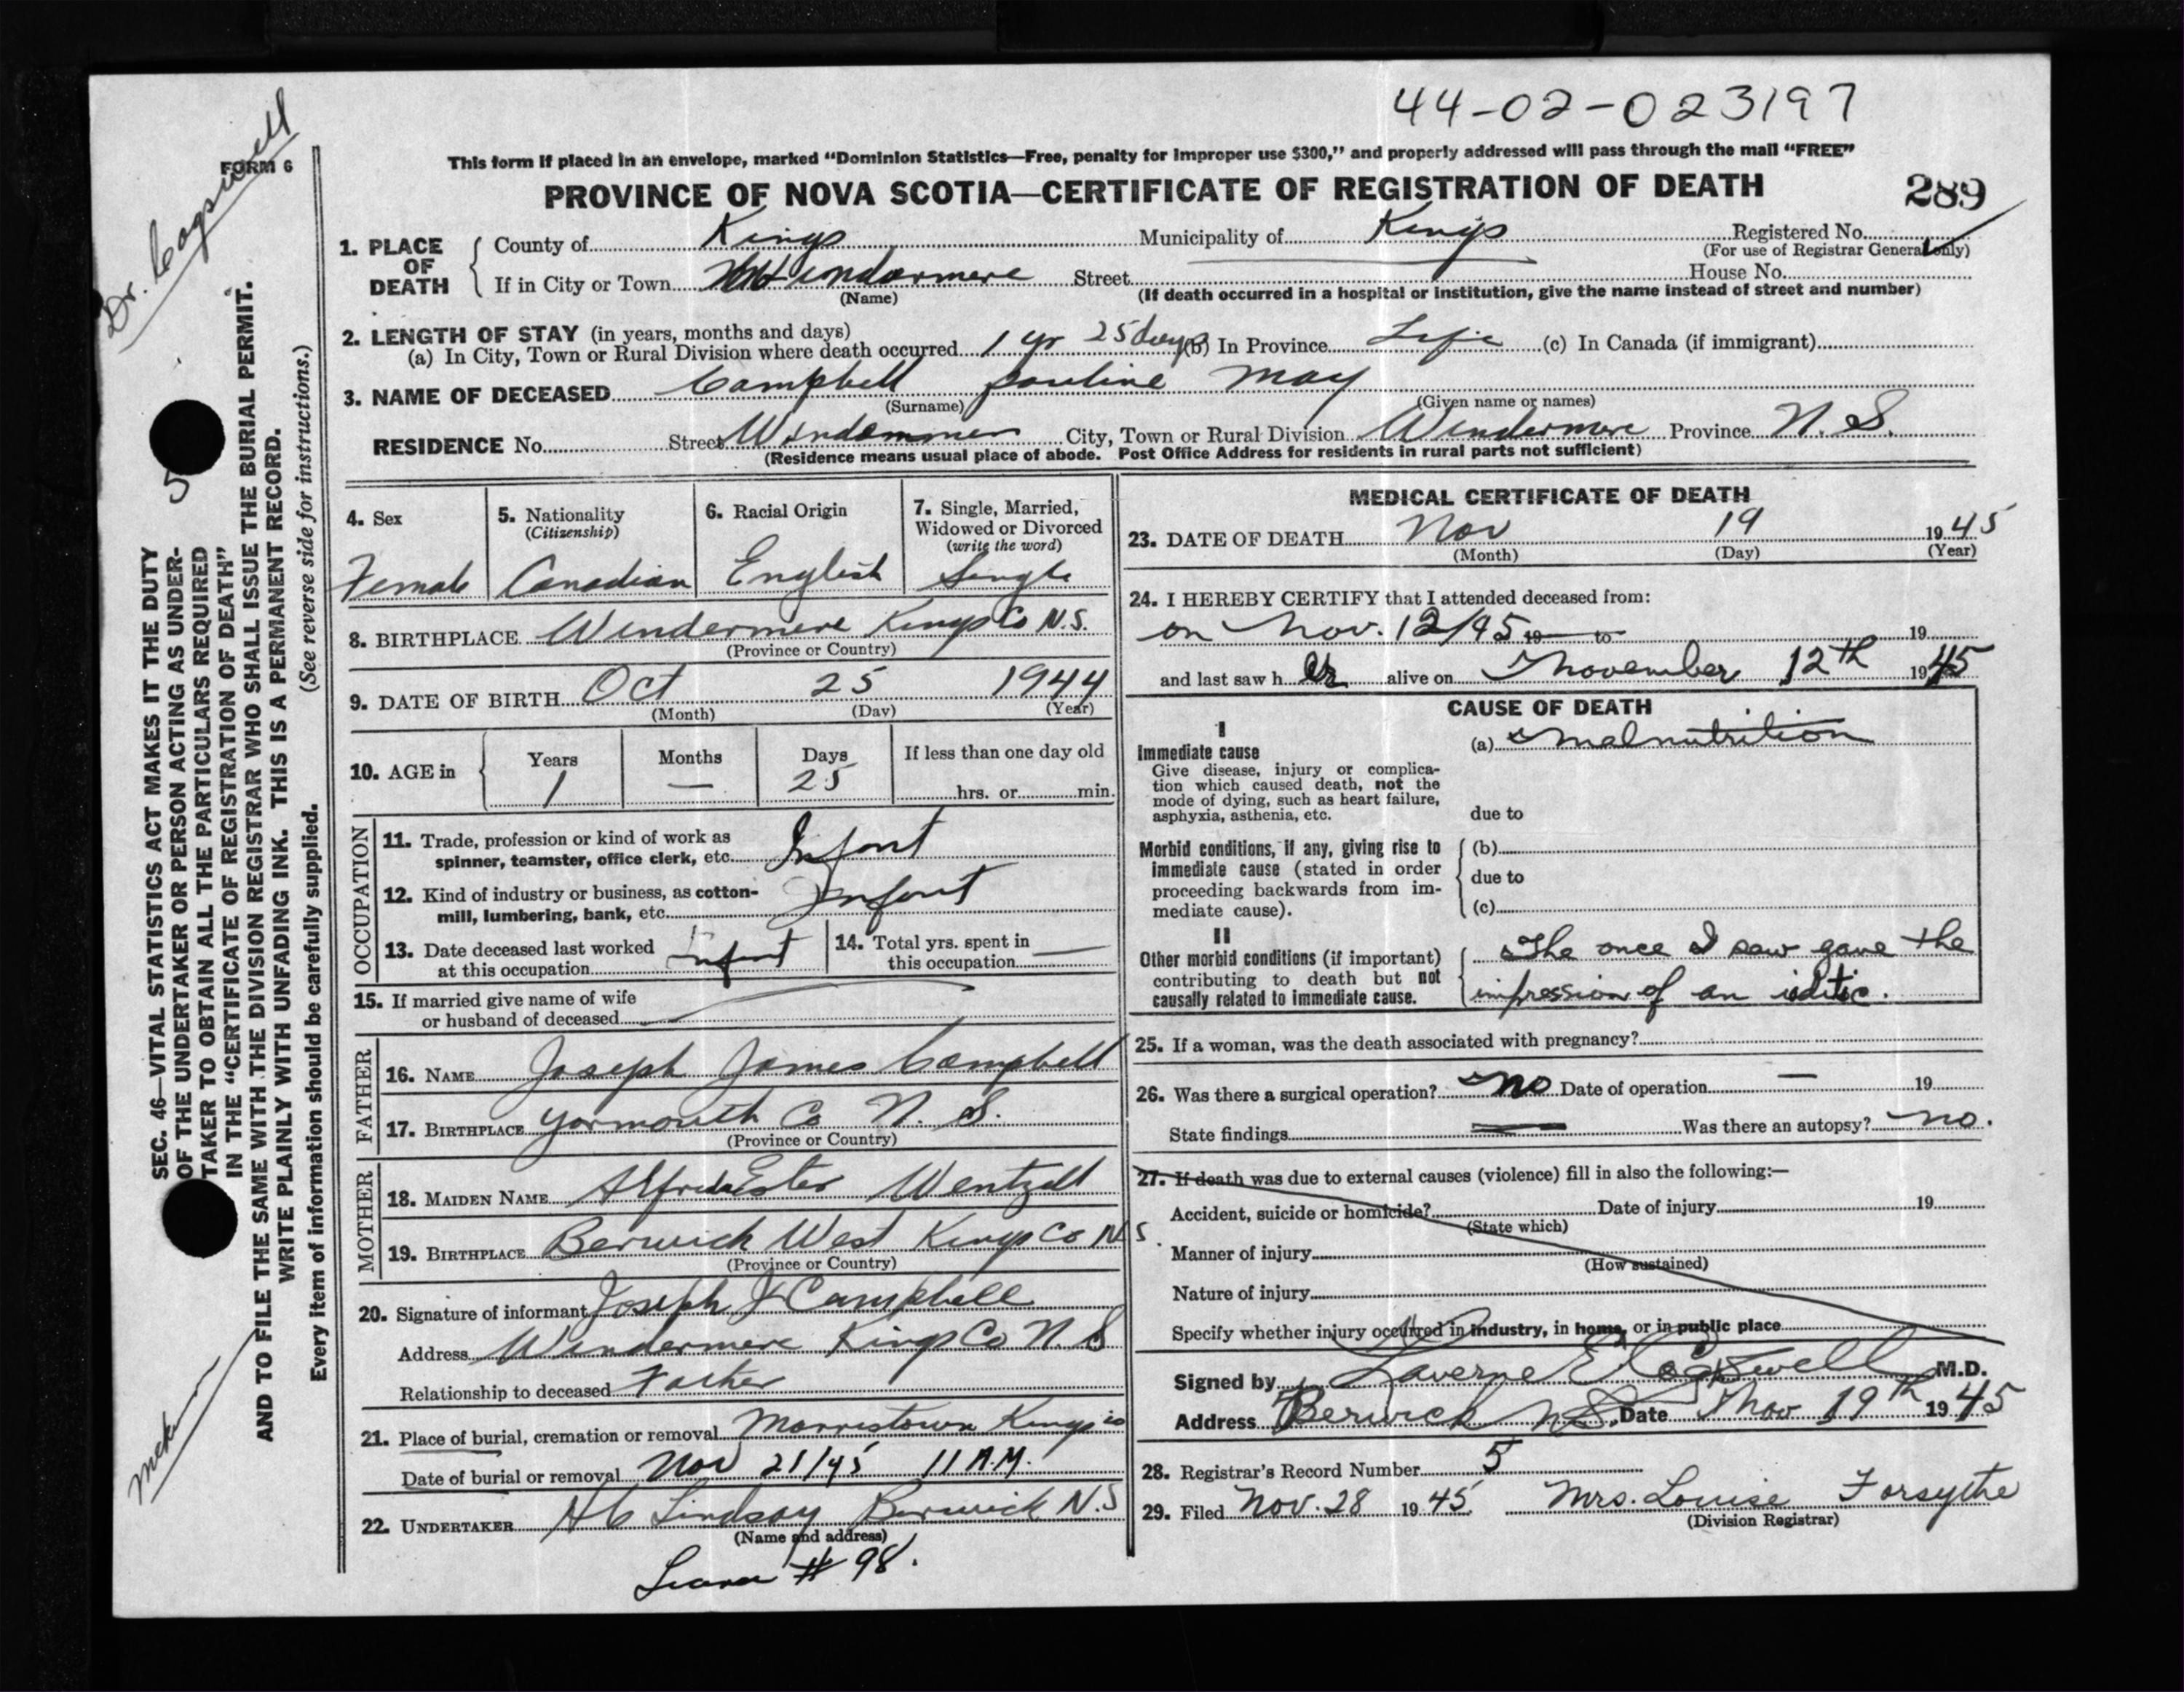 44-02-023197
Dr. Cogswell
FORM 6
This form if placed in an envelope, marked “Dominion Statistics—Free, penalty for improper use $300,” and properly addressed will pass through the mail “FREE”
PROVINCE OF NOVA SCOTIA—CERTIFICATE OF REGISTRATION OF DEATH
289
1. PLACE OF DEATH
County of Kings Municipality of Kings Registered No.
(For use of Registrar General only)
If in City or Town Windermere Street House No.
(Name) (If death occurred in a hospital or institution, give the name instead of street and number)
2. LENGTH OF STAY (in years, months and days)
(a) In City, Town or Rural Division where death occurred 1 yr 25 days (b) In Province Life (c) In Canada (if immigrant)
3. NAME OF DECEASED Campbell Pauline May
(Surname) (Given name or names)
RESIDENCE No. Street City, Town or Rural Division Windermere Province N.S.
(Residence means usual place of abode. Post Office Address for residents in rural parts not sufficient)
4. Sex
Female
5. Nationality
(Citizenship)
Canadian
6. Racial Origin
English
7. Single, Married,
Widowed or Divorced
(write the word)
Single
8. BIRTHPLACE Windermere Kings Co N.S.
(Province or Country)
9. DATE OF BIRTH Oct 25 1944
(Month) (Day) (Year)
10. AGE in
Years Months Days If less than one day old
1 — 25 hrs. or min.
OCCUPATION
11. Trade, profession or kind of work as
spinner, teamster, office clerk, etc. Infant
12. Kind of industry or business, as cotton-
mill, lumbering, bank, etc. Infant
13. Date deceased last worked
at this occupation Infant
14. Total yrs. spent in
this occupation —
15. If married give name of wife
or husband of deceased
FATHER
16. NAME Joseph James Campbell
17. BIRTHPLACE Yarmouth Co N.S.
(Province or Country)
MOTHER
18. MAIDEN NAME Ester Wentzell
19. BIRTHPLACE Berwick West Kings Co N S.
(Province or Country)
20. Signature of informant Joseph J Campbell
Address Windermere Kings Co N.S
Relationship to deceased Father
21. Place of burial, cremation or removal Morristown Kings Co
Date of burial or removal Nov 21/45 11 A.M.
22. UNDERTAKER Lindsay Berwick N.S
(Name and address)
# 98.
MEDICAL CERTIFICATE OF DEATH
23. DATE OF DEATH Nov 19 1945
(Month) (Day) (Year)
24. I HEREBY CERTIFY that I attended deceased from:
on Nov. 12/45 19 to 19
and last saw h er alive on November 12th 1945
CAUSE OF DEATH
I
Immediate cause
Give disease, injury or complica-
tion which caused death, not the
mode of dying, such as heart failure,
asphyxia, asthenia, etc.
(a) Malnutrition
due to
Morbid conditions, if any, giving rise to
immediate cause (stated in order
proceeding backwards from im-
mediate cause).
(b)
due to
(c)
II
Other morbid conditions (if important)
contributing to death but not
causally related to immediate cause.
The once I saw gave the
impression of an
25. If a woman, was the death associated with pregnancy?
26. Was there a surgical operation? No Date of operation — 19
State findings Was there an autopsy? no.
27. If death was due to external causes (violence) fill in also the following:—
Accident, suicide or homicide? Date of injury 19
(State which)
Manner of injury
(How sustained)
Nature of injury
Specify whether injury occurred in industry, in home, or in public place
Signed by Laverne E Cogswell M.D.
Address Berwick N.S. Date Nov 19th 1945
28. Registrar's Record Number 5
29. Filed Nov. 28 1945 Mrs. Louise Forsythe
(Division Registrar)
SEC. 46—VITAL STATISTICS ACT MAKES IT THE DUTY
OF THE UNDERTAKER OR PERSON ACTING AS UNDER-
TAKER TO OBTAIN ALL THE PARTICULARS REQUIRED
IN THE “CERTIFICATE OF REGISTRATION OF DEATH”
AND TO FILE THE SAME WITH THE DIVISION REGISTRAR WHO SHALL ISSUE THE BURIAL PERMIT.
WRITE PLAINLY WITH UNFADING INK. THIS IS A PERMANENT RECORD.
(See reverse side for instructions.)
Every item of information should be carefully supplied.
5